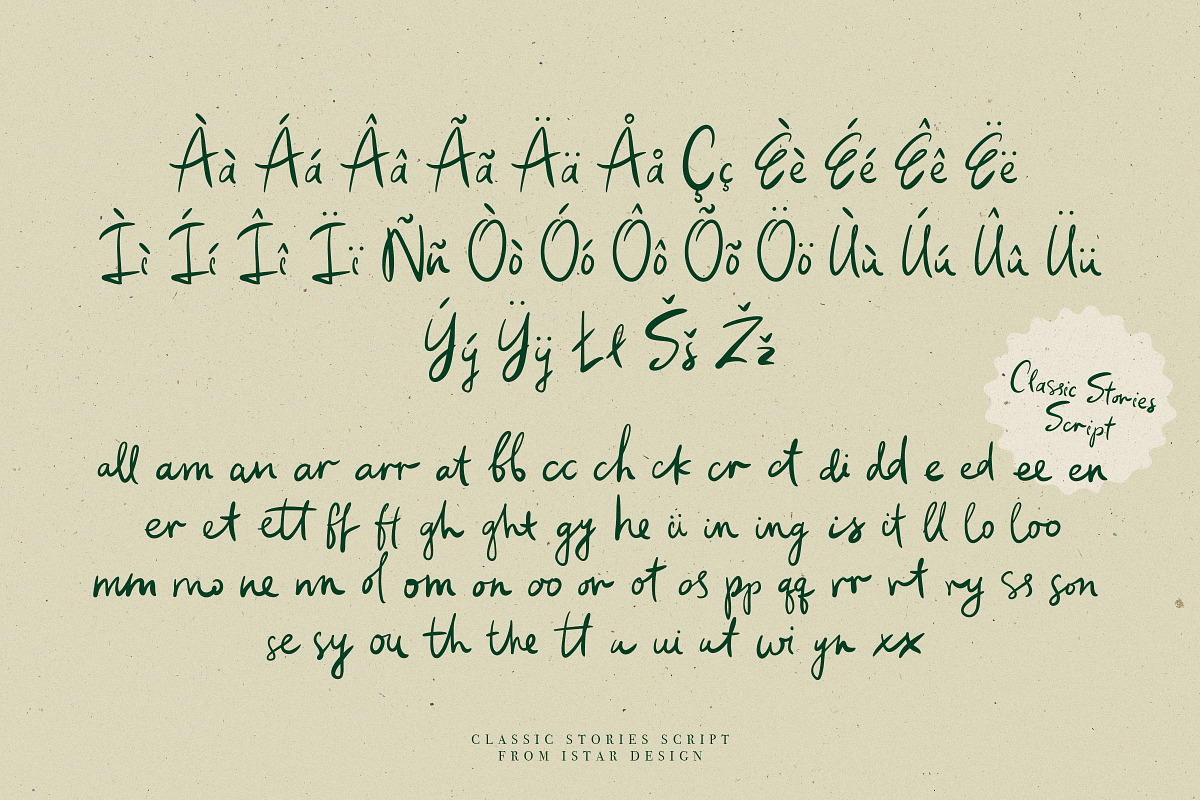 Àà Áá Ââ Ãã Ää Åå Çç Èè Éé Êê Ëë
Ìì Íí Îî Ïï Ññ Òò Óó Ôô Õõ Öö Ùù Úú Ûû Üü
Ýý Ÿÿ Łł Šš Žž
Classic Stories
Script
all am an ar arr at bb cc ch ck cr ct di dd e ed ee en
er et ett ff ft gh ght gy he ii in ing is it ll lo loo
mm mo ne nn ol om on oo or ot os pp qq rr rt ry ss son
se sy ou th the tt u ui ut wi yn xx
CLASSIC STORIES SCRIPT
FROM ISTAR DESIGN